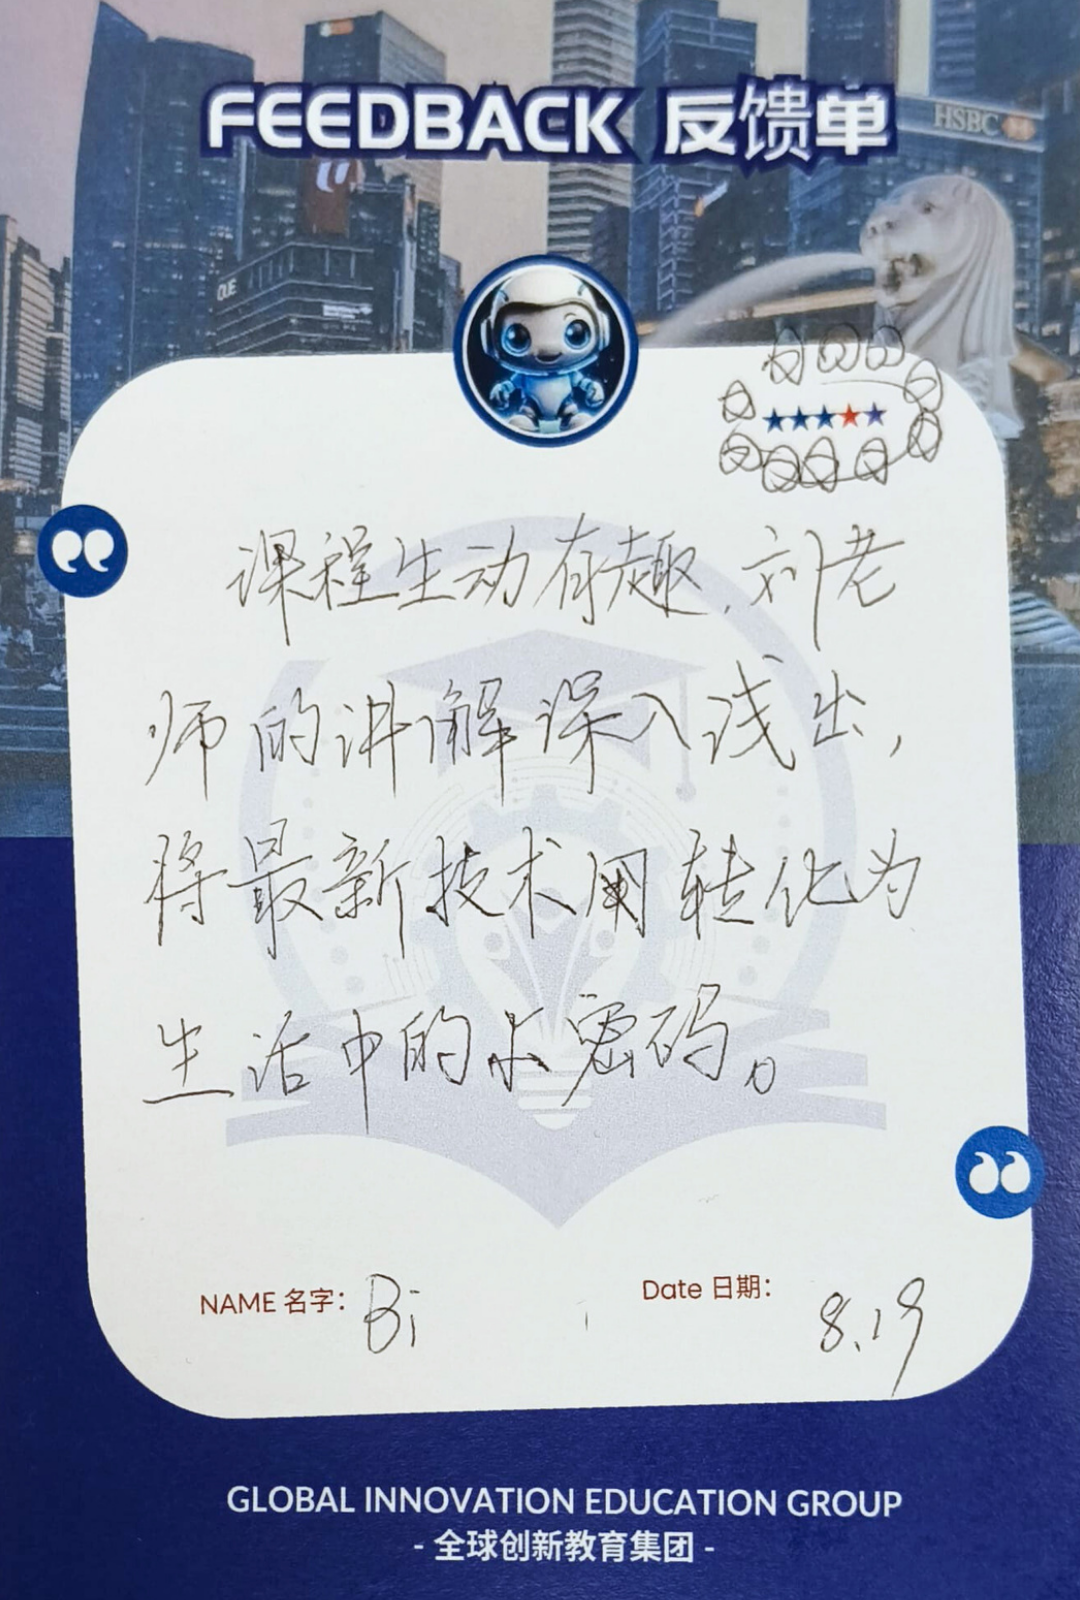 FEEDBACK 反馈单
HSBC
OUE
课程生动有趣，刘老
师的讲解深入浅出，
将最新技术用转化为
生活中的小密码。
NAME 名字： Bi
Date 日期： 8.19
GLOBAL INNOVATION EDUCATION GROUP
- 全球创新教育集团 -